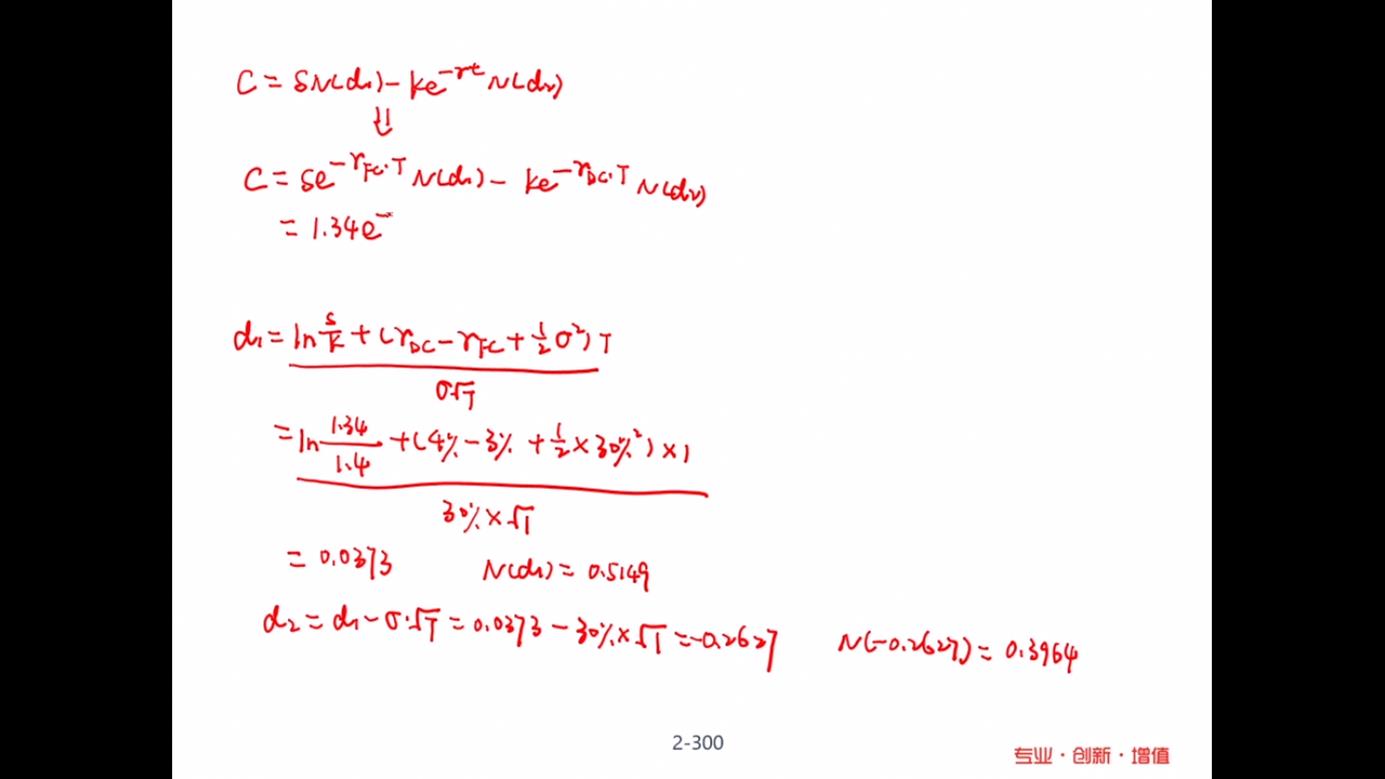 C = SN(d₁) - Ke^{-rt} N(d₂)
⇓
C = Se^{-r_{FC}·T} N(d₁) - Ke^{-r_{DC}·T} N(d₂)
= 1.34e^{-}
d₁ = \frac{ln\frac{S}{K} + (r_{DC} - r_{FC} + \frac{1}{2}σ²)T}{σ√T}
= \frac{ln\frac{1.34}{1.4} + (4% - 3% + \frac{1}{2}×30%²)×1}{30%×√1}
= 0.0373 N(d₁) = 0.5149
d₂ = d₁ - σ·√T = 0.0373 - 30%×√1 = -0.2627 N(-0.2627) = 0.3964
2-300
专业·创新·增值